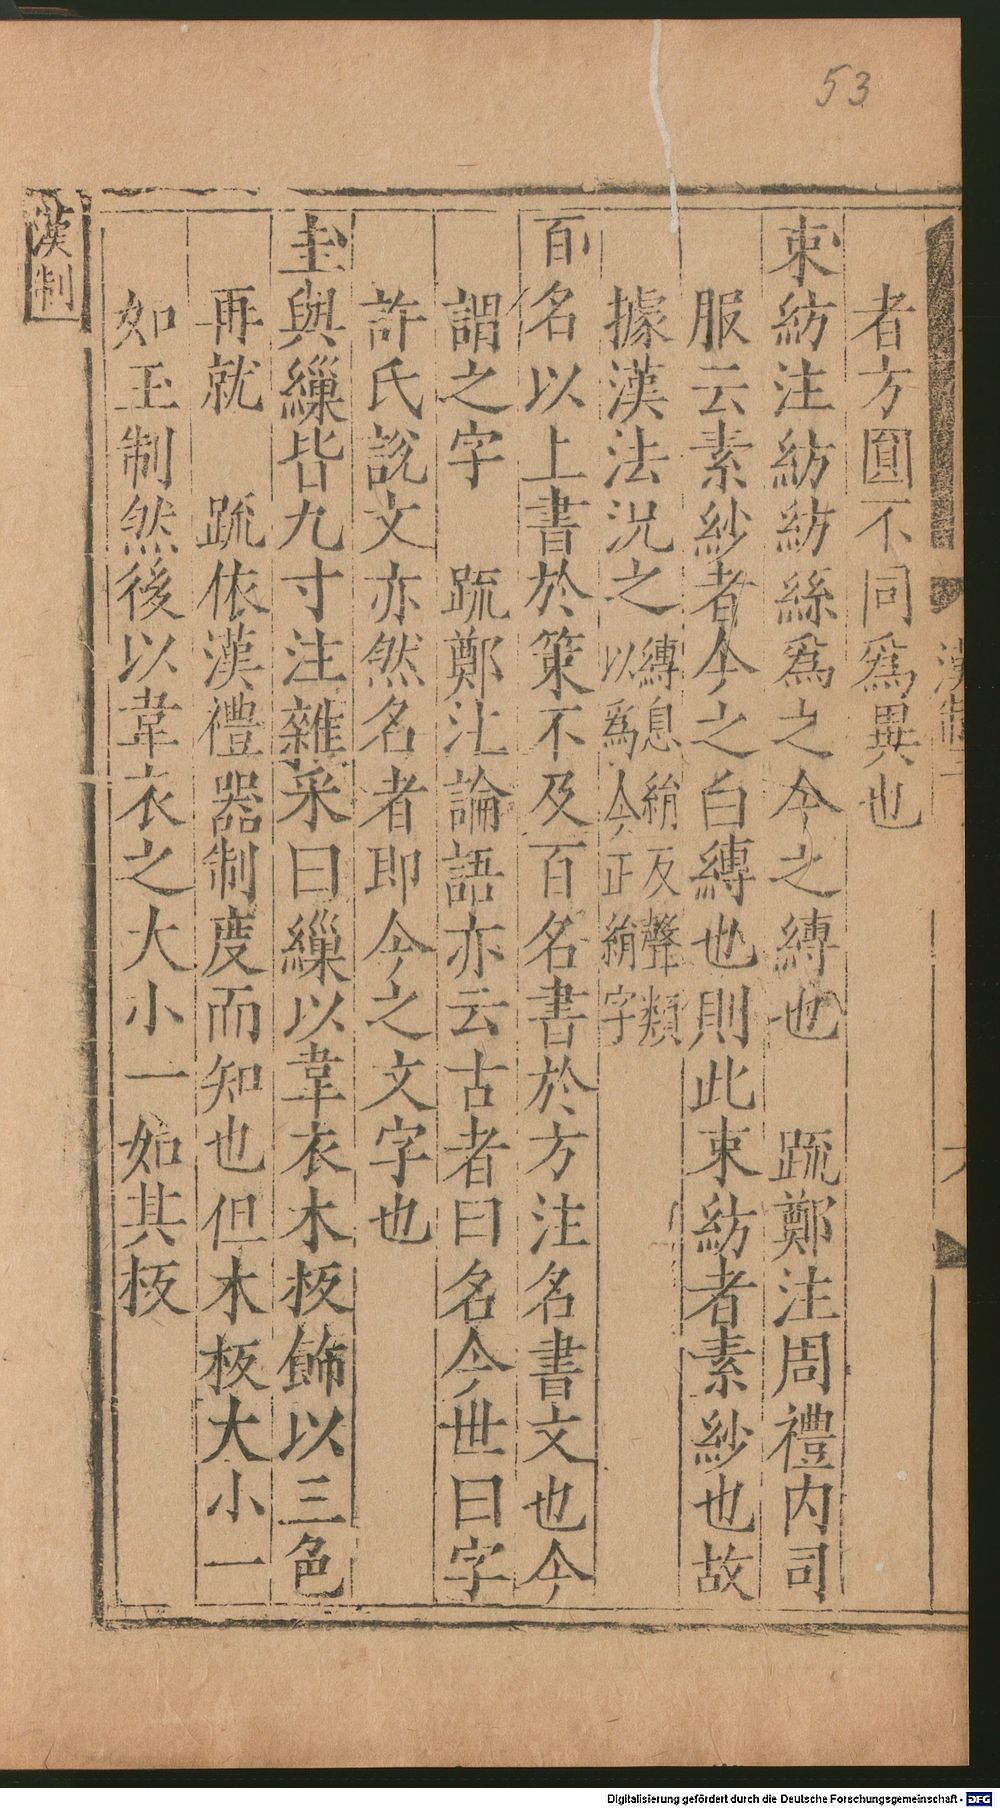 53
者方圓不同爲異也
束紡注紡紡絲爲之今之縳也　疏鄭注周禮内司
服云素紗者今之白縳也則此束紡者素紗也故
據漢法况之縳息絹反聲類以爲今正絹字
百名以上書於策不及百名書於方注名書文也今
謂之字　疏鄭注論語亦云古者曰名今世曰字
許氏說文亦然名者即今之文字也
圭與繅皆九寸注雜采曰繅以韋衣木板飾以三色
再就　疏依漢禮器制度而知也但木板大小一
如玉制然後以韋衣之大小一如其板
漢制
Digitalisierung gefördert durch die Deutsche Forschungsgemeinschaft - DFG